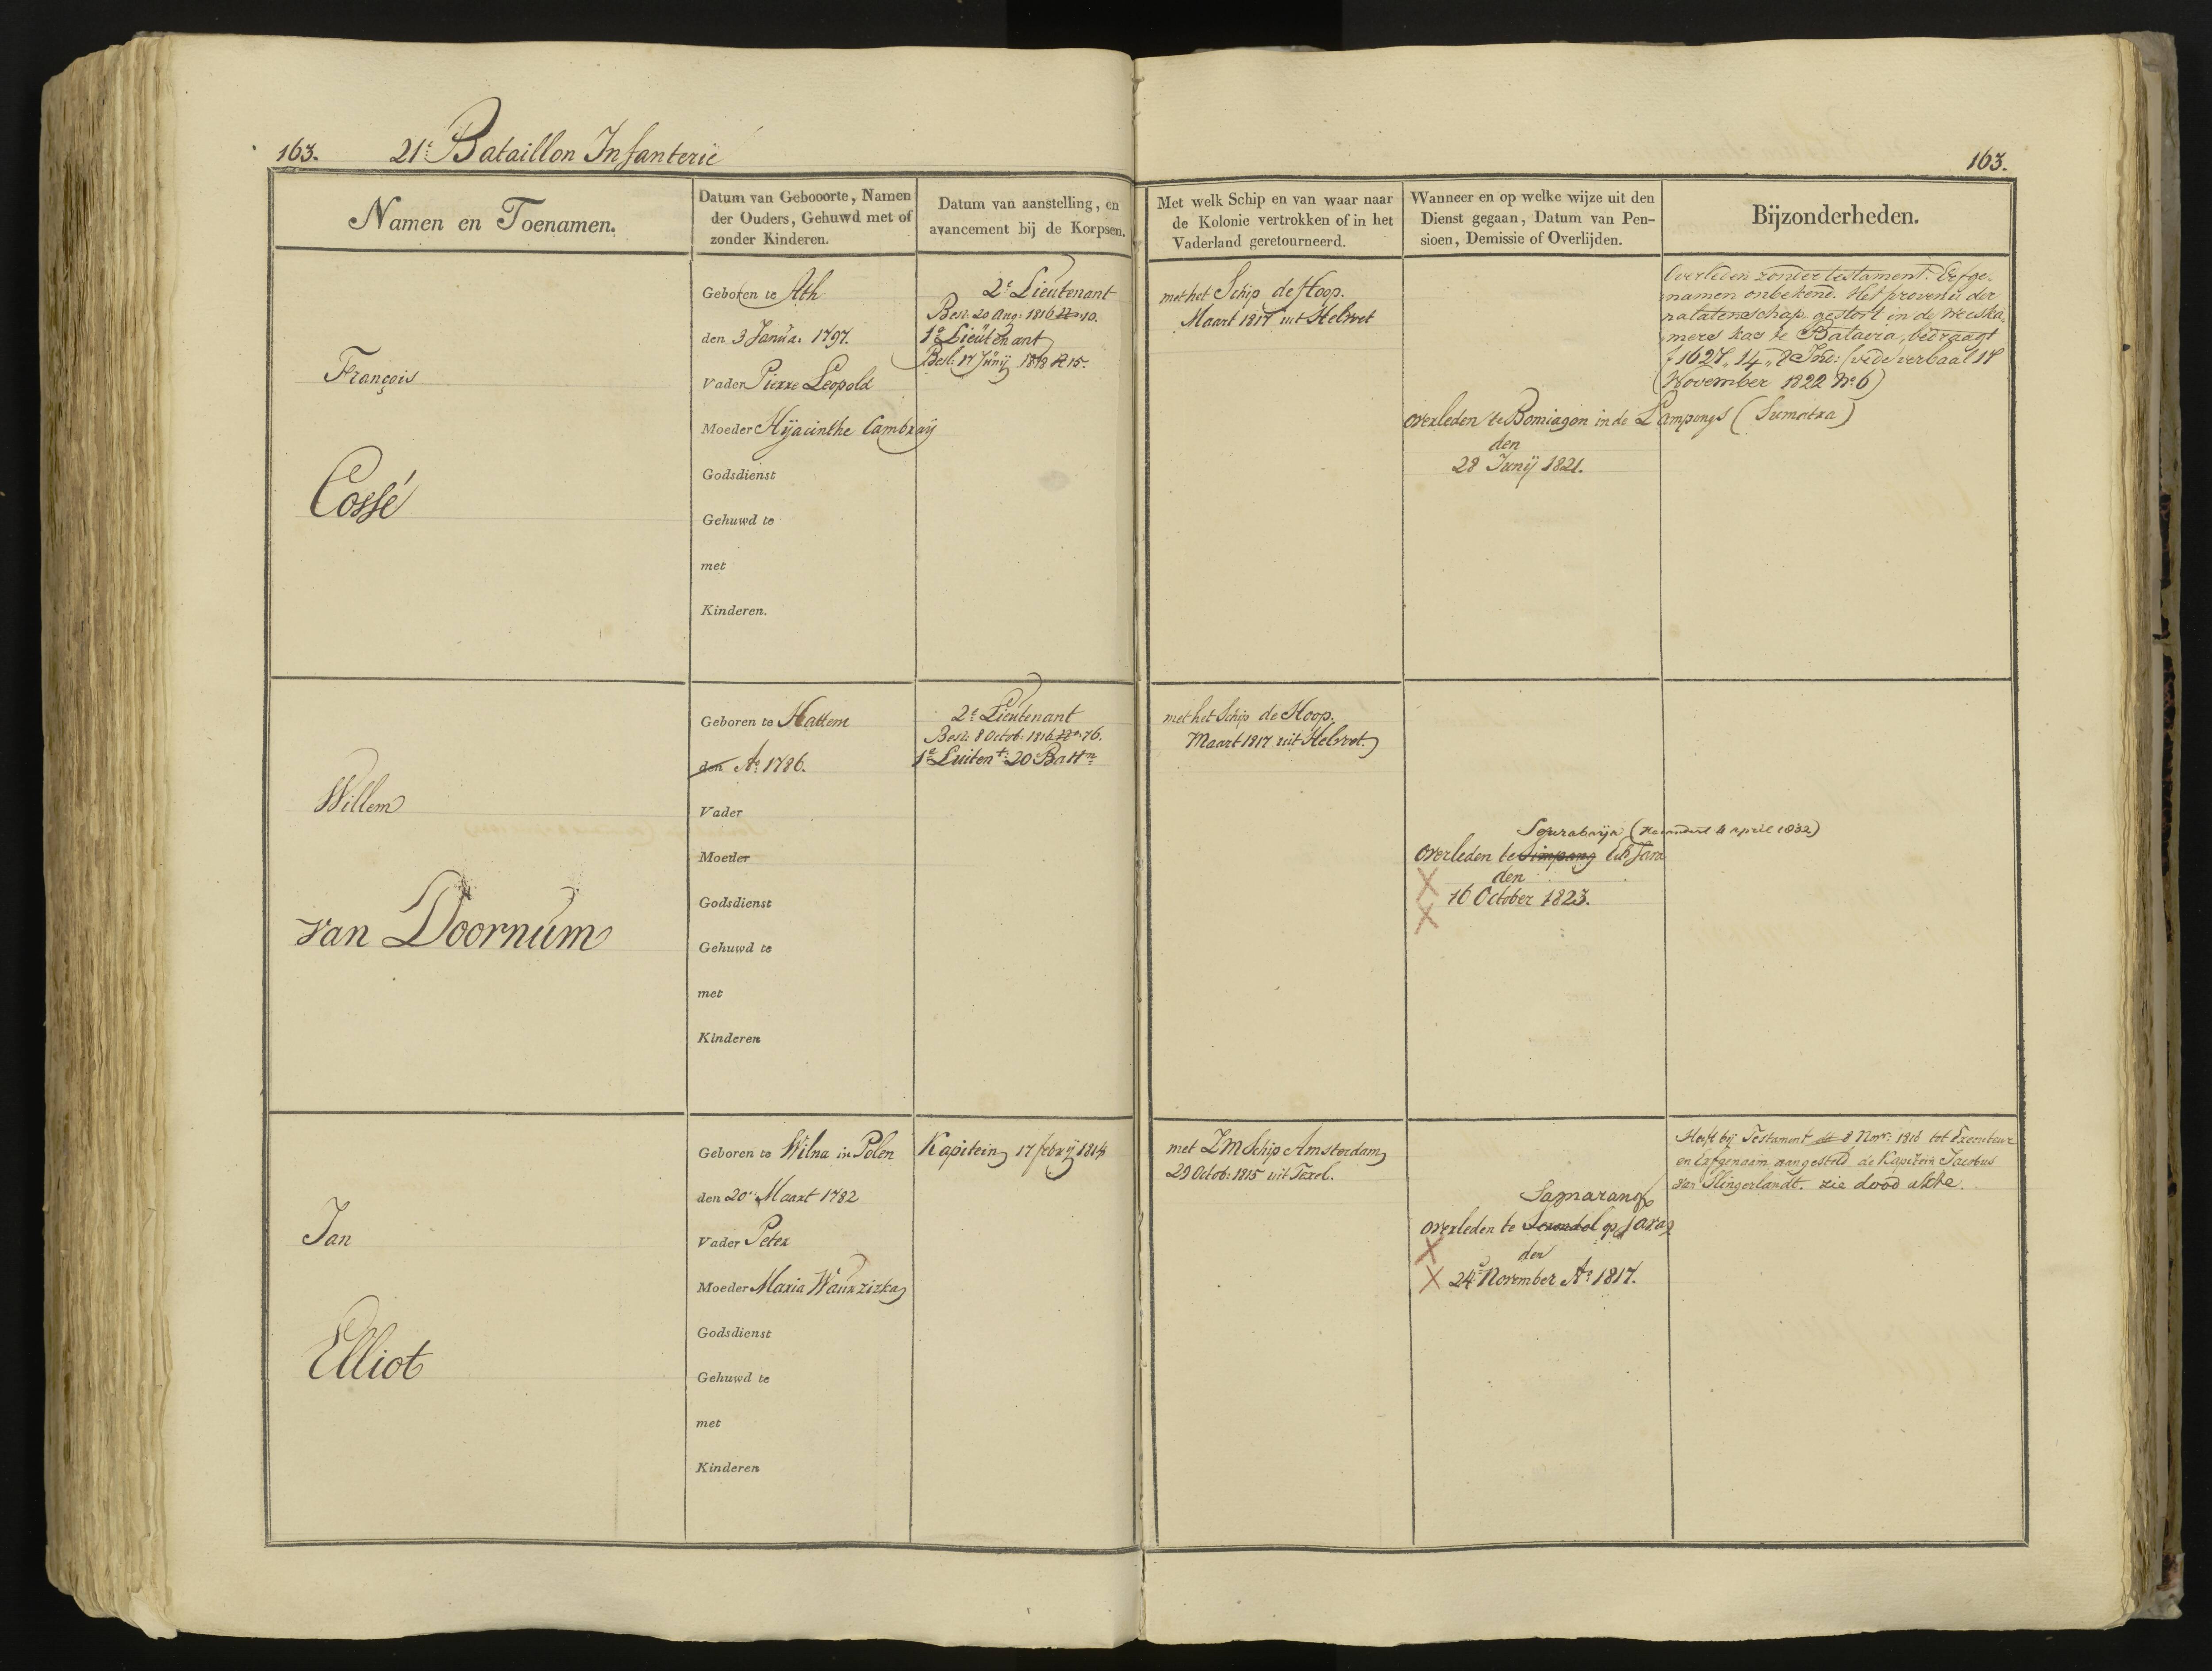 163. 21e Bataillon Infanterie
163.
Namen en Toenamen.
Datum van Gebooorte, Namen
der Ouders, Gehuwd met of
zonder Kinderen.
Datum van aanstelling, en
avancement bij de Korpsen.
Met welk Schip en van waar naar
de Kolonie vertrokken of in het
Vaderland geretourneerd.
Wanneer en op welke wijze uit den
Dienst gegaan, Datum van Pen-
sioen, Demissie of Overlijden.
Bijzonderheden.
François
Cossé
Geboren te Ath
den 3 Janua: 1797.
Vader Pierre Leopold
Moeder Hÿacinthe Cambraÿ
Godsdienst
Gehuwd te
met
Kinderen.
2e Lieutenant
Besl: 20 Aug: 1816 No 10.
1e Lieutenant
Besl: 17 Junij 1818 N 15.
met het Schip de Hoop.
Maart 1817 uit Helvoet
overleden te Bomiagon in de Lampongs (Sumatra)
den
28 Junij 1821.
Overleden zonder testament. Erfge-
namen onbekend. Het provenu der
nalatenschap gestort in de weeska-
mers kas te Batavia, bedraagt
f 1627,, 14,, 8 Ind: (vide verbaal 17
November 1822 No 6)
Willem
van Doornum
Geboren te Hattem
den Ao 1786.
Vader
Moeder
Godsdienst
Gehuwd te
met
Kinderen
2e Lieutenant
Besl: 8 Octob: 1816 No 76.
1e Luitent 20e Battn
met het Schip de Hoop.
Maart 1817 uit Helvoet.
Sourabaija (Veranderd 4 april 1832)
overleden te Simpang Eild Java
den
16 October 1823.
Jan
Elliot
Geboren te Wilna in Polen
den 20n Maart 1782
Vader Peter
Moeder Maria Waurzizka
Godsdienst
Gehuwd te
met
Kinderen
Kapitein 17 febrij 1814
met ZM Schip Amsterdam
29 Octob: 1815 uit Texel.
Samarang
overleden te op Java
den
24e November Ao 1817.
Heeft bij Testament dd 8 Novr: 1816 tot Executeur
en Erfgenaam aangesteld de Kapitein Jacobus
van Slingerlandt. zie dood akte.